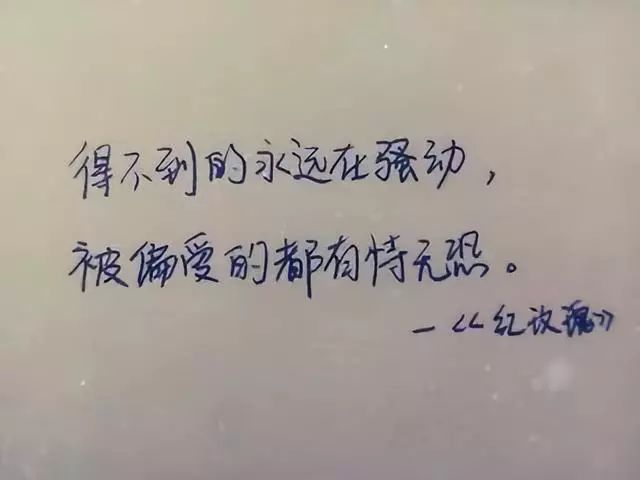 得不到的永远在骚动，
被偏爱的都有恃无恐。
—《红玫瑰》